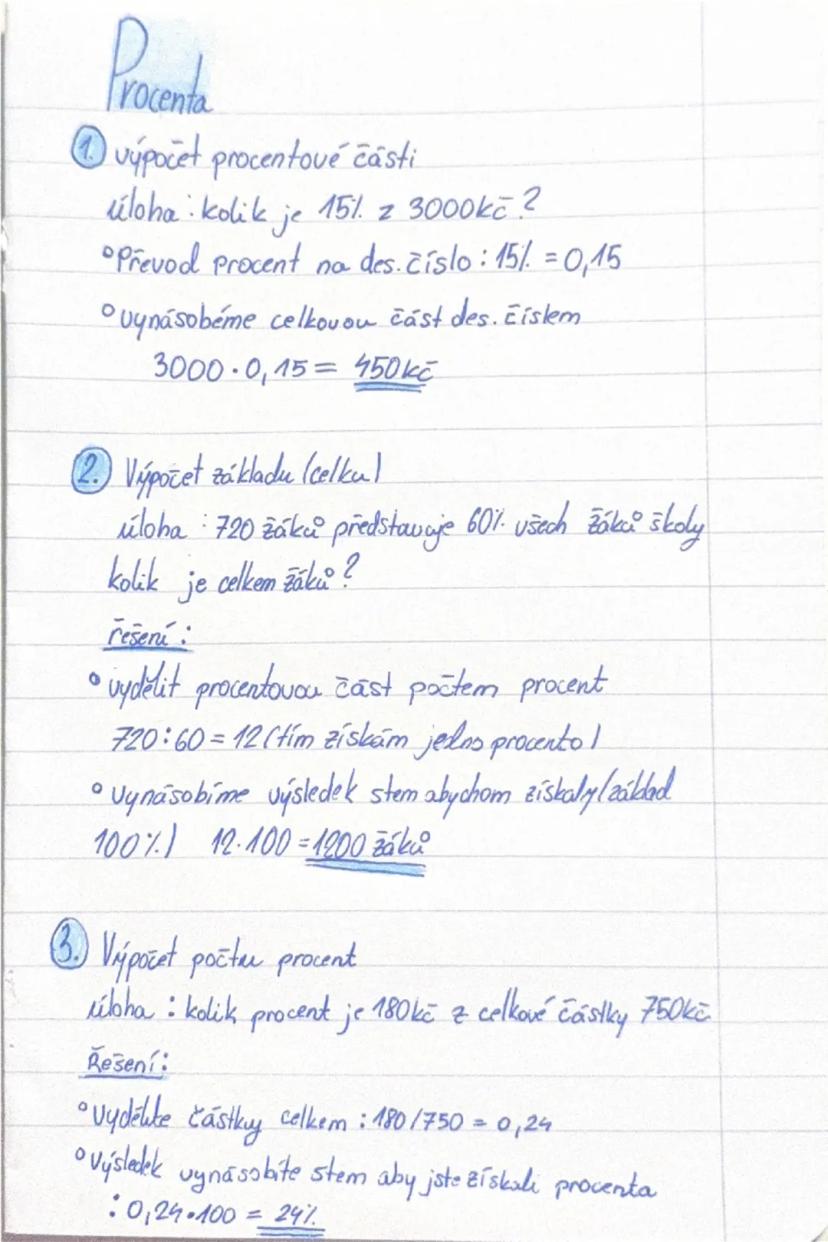 Procenta
1. výpočet procentové části
úloha : kolik je 15% z 3000kč?
°Převod procent na des. číslo : 15% = 0,15
°vynásobéme celkovou část des. číslem
3000 · 0,15 = 450kč
2. Výpočet základu (celku)
úloha : 720 žáků představuje 60% všech žáků školy
kolik je celkem žáků?
řešení :
° vydělit procentovou část počtem procent
720 : 60 = 12 (tím získám jedno procento)
° vynásobíme výsledek stem abychom získaly (základ
100%) 12·100 = 1200 žáků
3. Výpočet počtu procent
úloha : kolik procent je 180kč z celkové částky 750kč
Řešení :
°Vydělíte částky celkem : 180/750 = 0,24
°výsledek vynásobíte stem aby jste získali procenta
: 0,24·100 = 24%